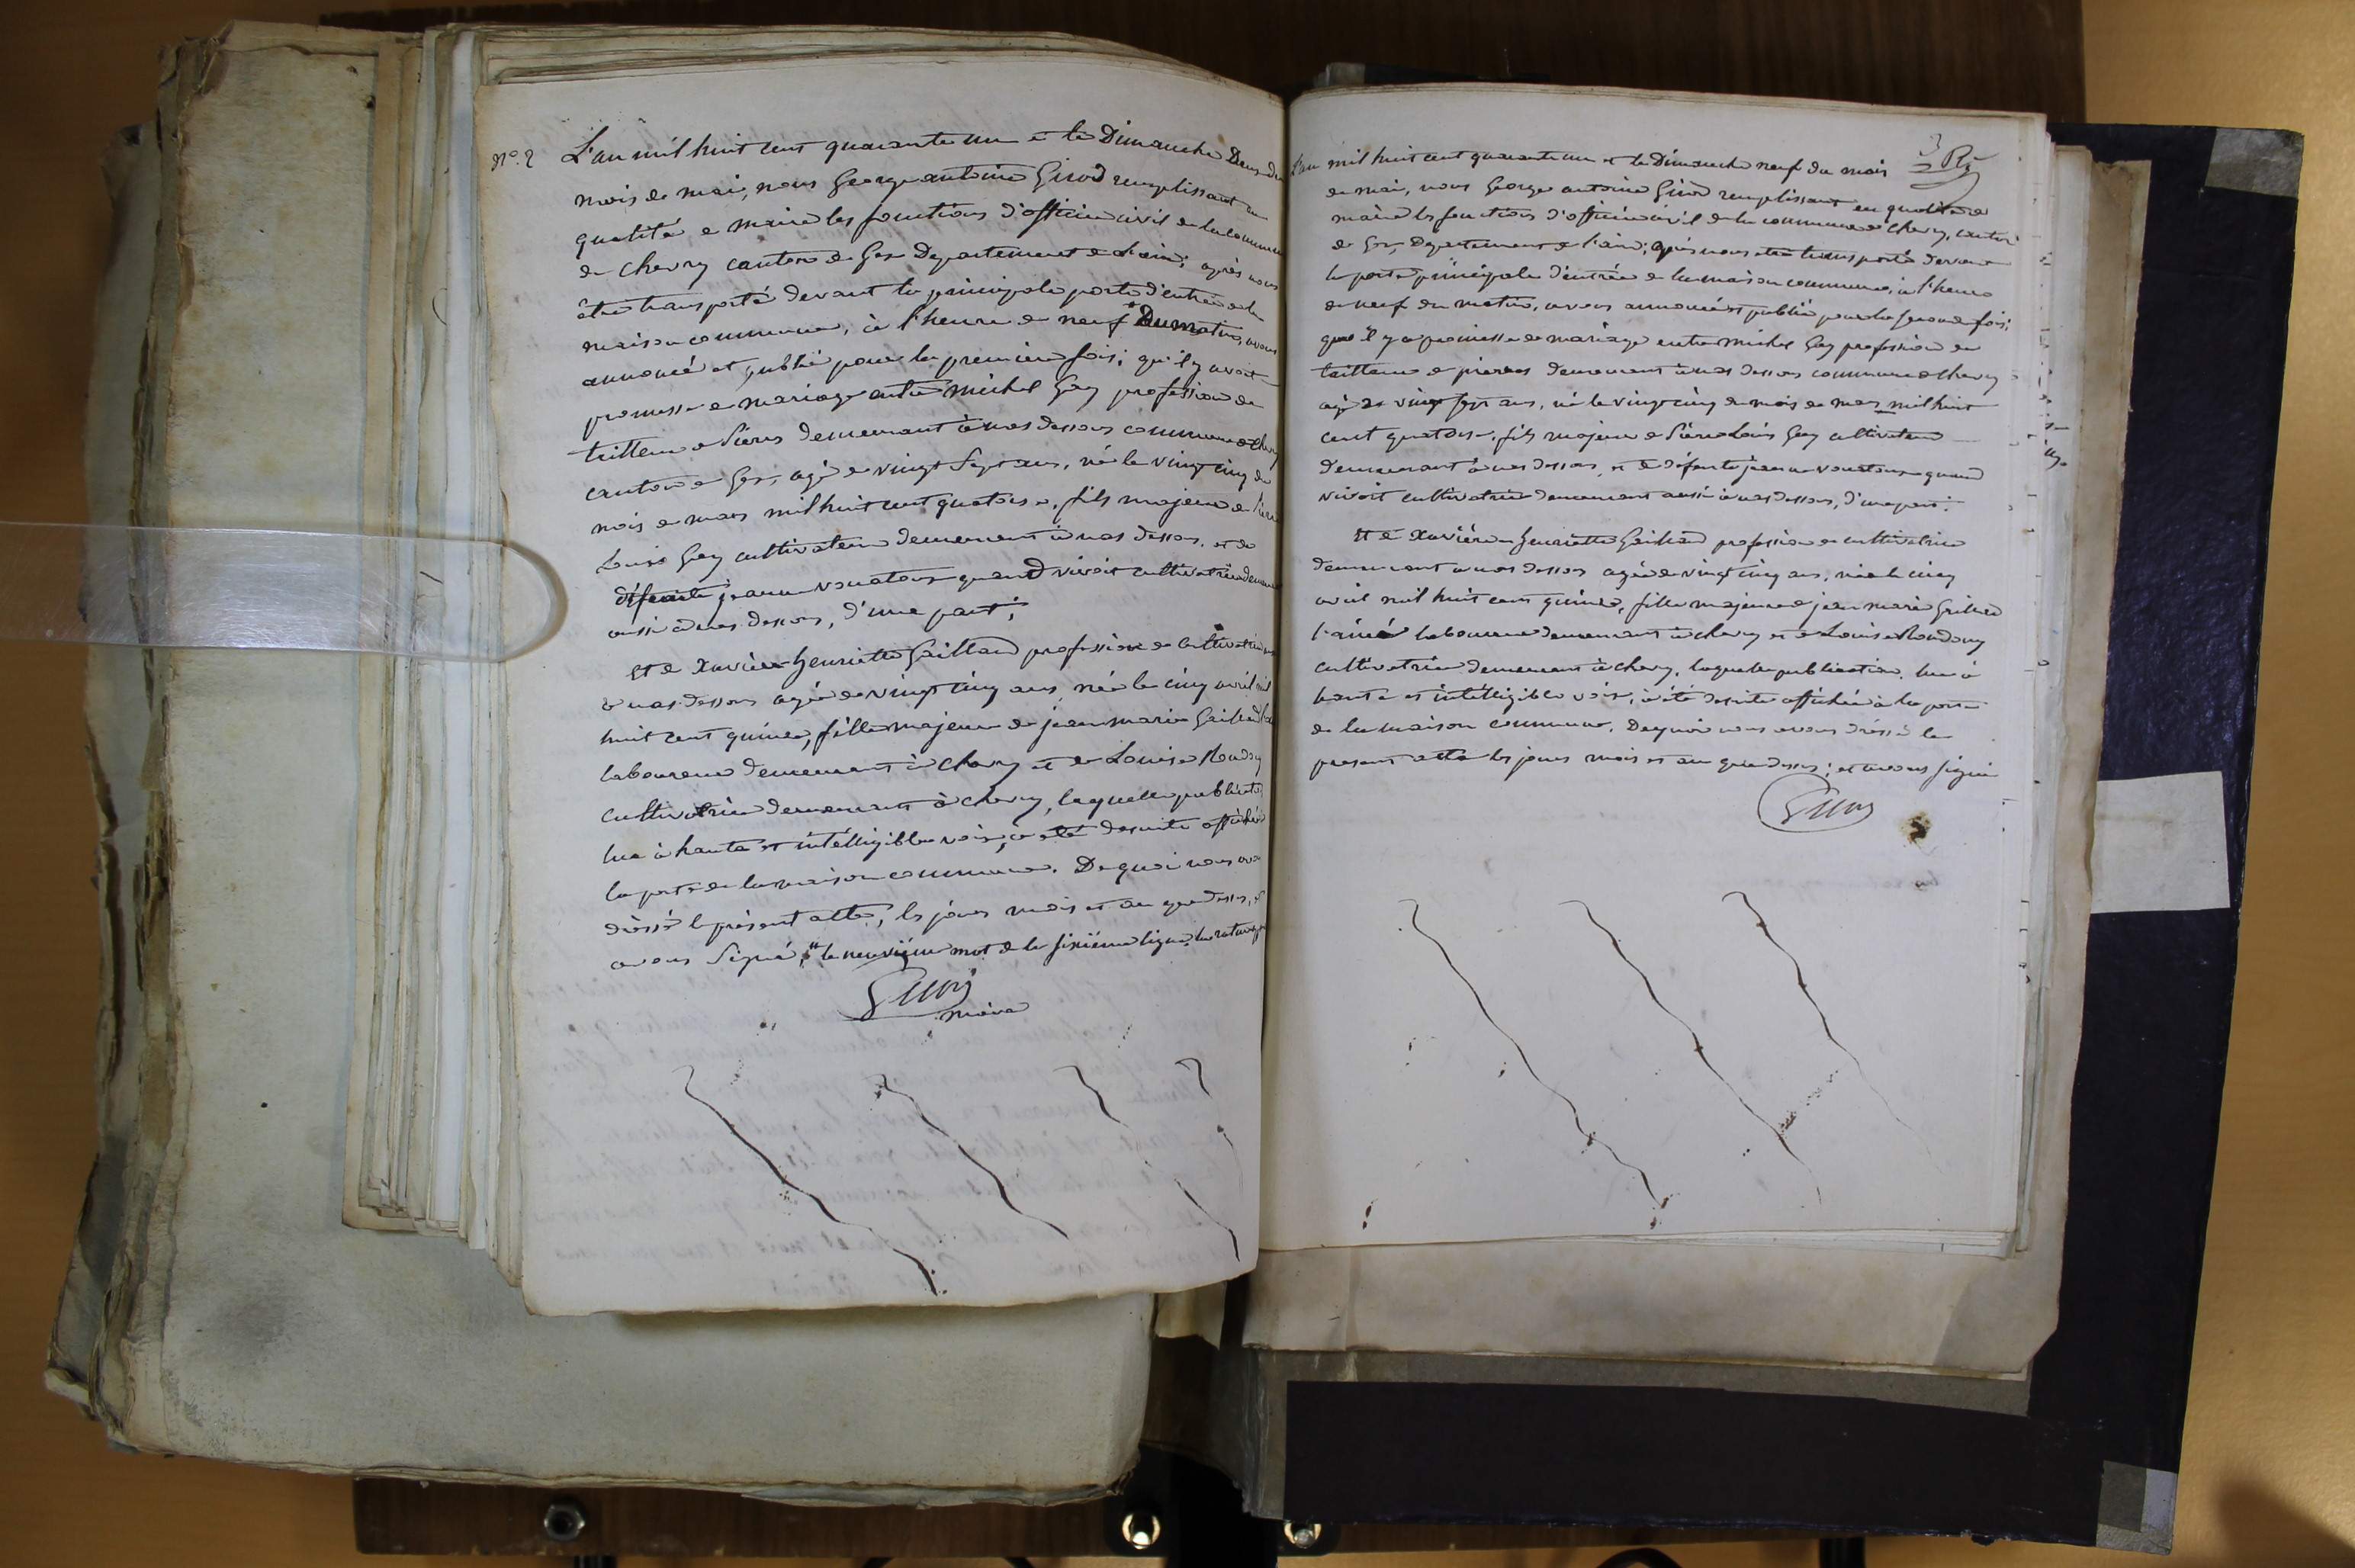 N°. 2
L'an mil huit cent quarante un et le Dimanche Deux du
mois de mai, nous George antoine Girod remplissant en
qualité de maire les fonctions d'officier civil de la commune
de Chevry canton de Gex Departement de L'ain; après nous
être transporté devant la principale porte d'entrée de la
maison commune, à l'heure de neuf Du matin, avons
annoncé et publié pour la premiere fois; qu'il y avait
promesse de mariage entre michel Gay profession de
tailleur de Pierres demeurant à nas dessous commune de Chevry
canton de Gex, agé de vingt Sept ans, né le vingt cinq du
mois de mars mil huit cent quatorse, fils majeur de Pierre
Louis Gay cultivateur demeurant à nas dessous, et de
défunte jeanne quand vivoit cultivatrice
aussi à nas dessous, d'une part;
Et de Xavière henriette Gaillard profession de Cultivatrice
à nas dessous agée de vingt cinq ans, née le cinq avril mil
huit cent quinze, fille majeure de jean marie Gaillard
laboureur demeurant à Chevry et de Louise
cultivatrice demeurant à Chevry, laquelle publication
lue à haute et intélligible voix, à été desuite affichée
la porte de la maison commune. De quoi nous avons
dréssé le présent acte, les jours mois et an que dessus, et
avons Signé, "le neuvième mot de la sixième ligne
Girod
maire
3
L'an mil huit cent quarante un et le Dimanche neuf du mois
de mai, nous George antoine Girod remplissant en qualité de
maire les fonctions d'officier civil de la commune de Chevry, canton
de Gex, Departement de l'ain; après nous etre transporté devant
la porte principale d'entrée de la maison commune, à l'heure
de neuf du matin, avons annoncé et publié pour la seconde fois;
que il y a promesse de mariage entre michel Gay profession de
taillieur de pierres demeurant à nas dessous commune de Chevry
agé de vingt sept ans, né le vingt cinq du mois de mars mil huit
cent quatorse, fils majeur de Pierre Louis Gay cultivateur
demeurant à nas dessous, et de défunte jeanne quand
vivoit cultivatrice demeurant aussi à nas dessous, d'une part;
Et de Xavière henriette Gaillard profession de cultivatrice
demeurant à nas dessous agée de vingt cinq ans, née le cinq
avril mil huit cent quinze, fille majeure de jean marie Gaillard
l'ainé laboureur demeurant à chevry et de Louise
cultivatrice demeurant à chevry, laquelle publication, lue à
haute et intélligible voix, à été desuite affichée à la porte
de la maison commune. De quoi nous avons dréssé le
present acte les jours mois et an que dessus; et avons signé
Girod